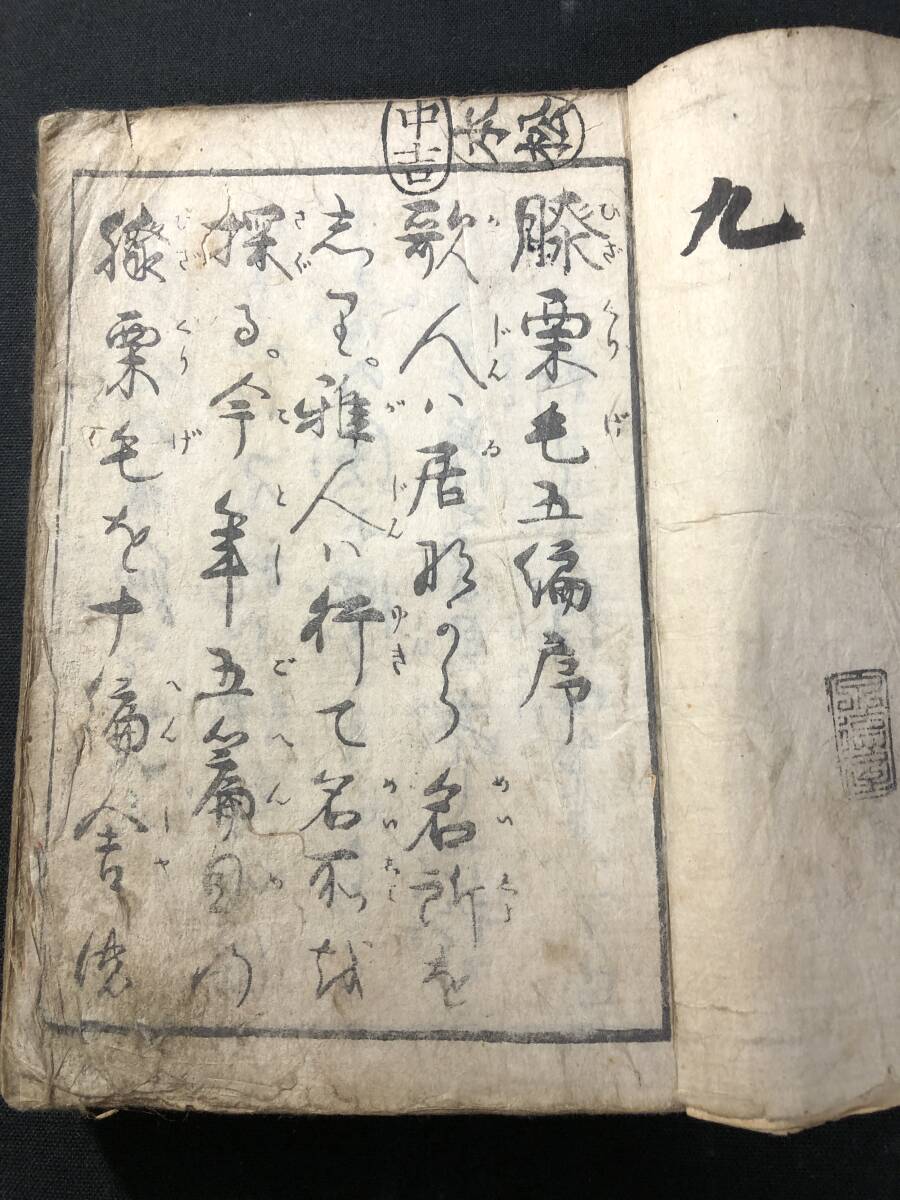 九
膝栗毛五編序
歌人ハ居ながら名所を
しる。雅人ハ行て名所を
探る。今年五篇目の
膝栗毛を十偏舎
中吉